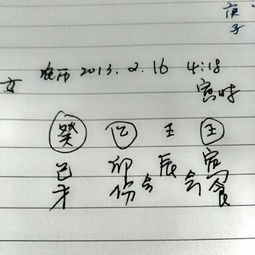 庚
子
女 农历 2013. 2. 16 4:18
寅时
癸 乙 壬 壬
巳 卯 会 辰 会 寅
才 伤 食